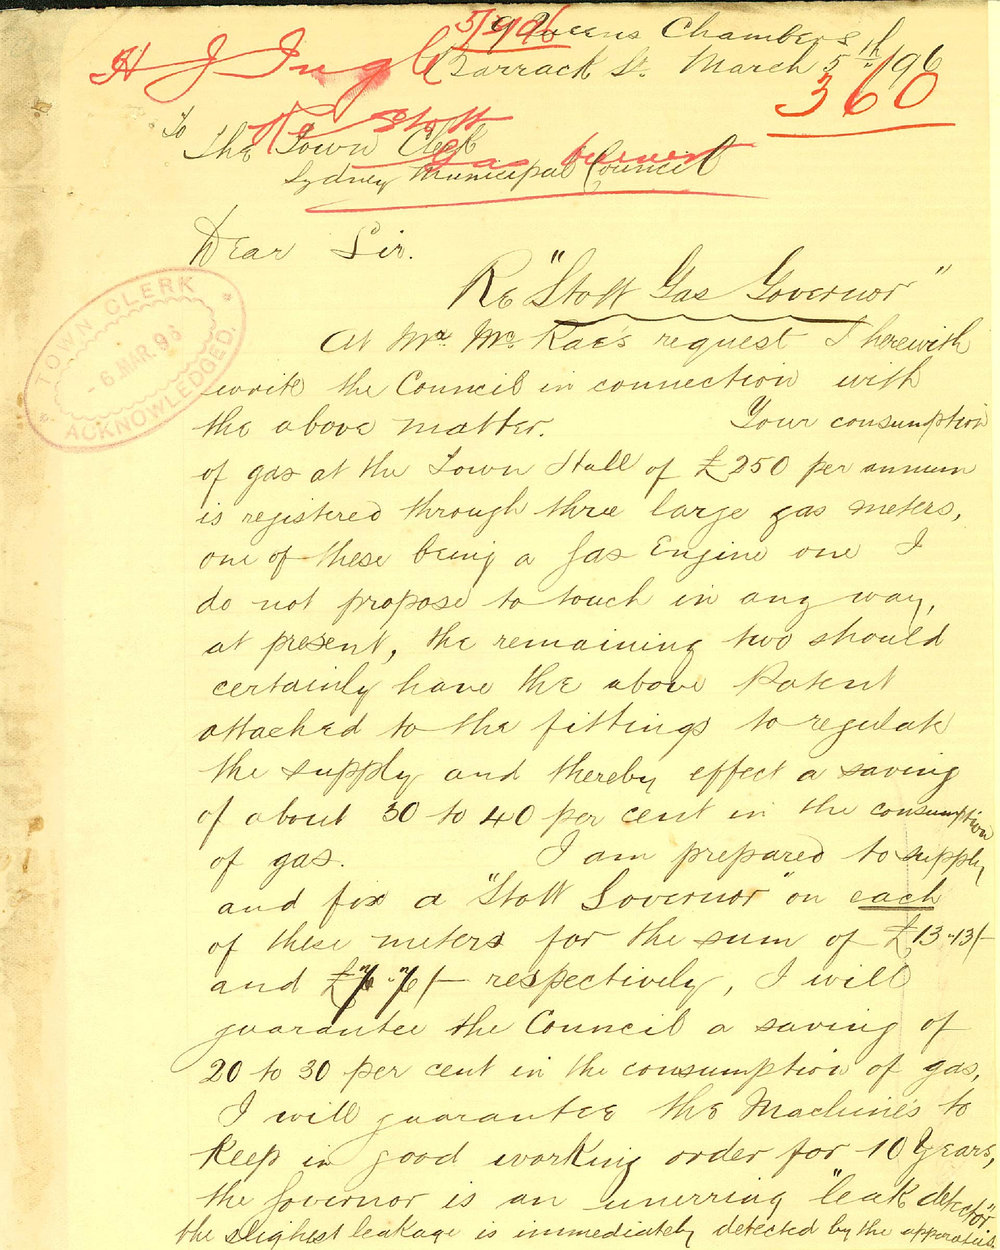 5/3/96
9 Queens Chambers
H J Ingle
Barrack St. March 5th /96
360
To
Re Stott
The Town Clerk
Gas burner
Sydney Municipal Council
Dear Sir.
Re "Stott Gas Governor"
TOWN CLERK
6. MAR. 96
ACKNOWLEDGED.
At Mr. Mc. Rae's request I herewith
write the Council in connection with
the above matter. Your consumption
of gas at the Town Hall of £250 per annum
is registered through three large gas meters,
one of these being a Gas Engine one I
do not propose to touch in any way,
at present, the remaining two should
certainly have the above Patent
attached to the fittings to regulate
the supply and thereby effect a saving
of about 30 to 40 per cent in the consumption
of gas. I am prepared to supply
and fix a "Stott Governor" on each
of these meters for the sum of £13"13/-
and £7"7/- respectively, I will
guarantee the Council a saving of
20 to 30 per cent in the consumption of gas,
I will guarantee the Machine's to
keep in good working order for 10 Years,
the Governor is an unerring "leak detector"
the slighest leakage is immediately detected by the apparatus